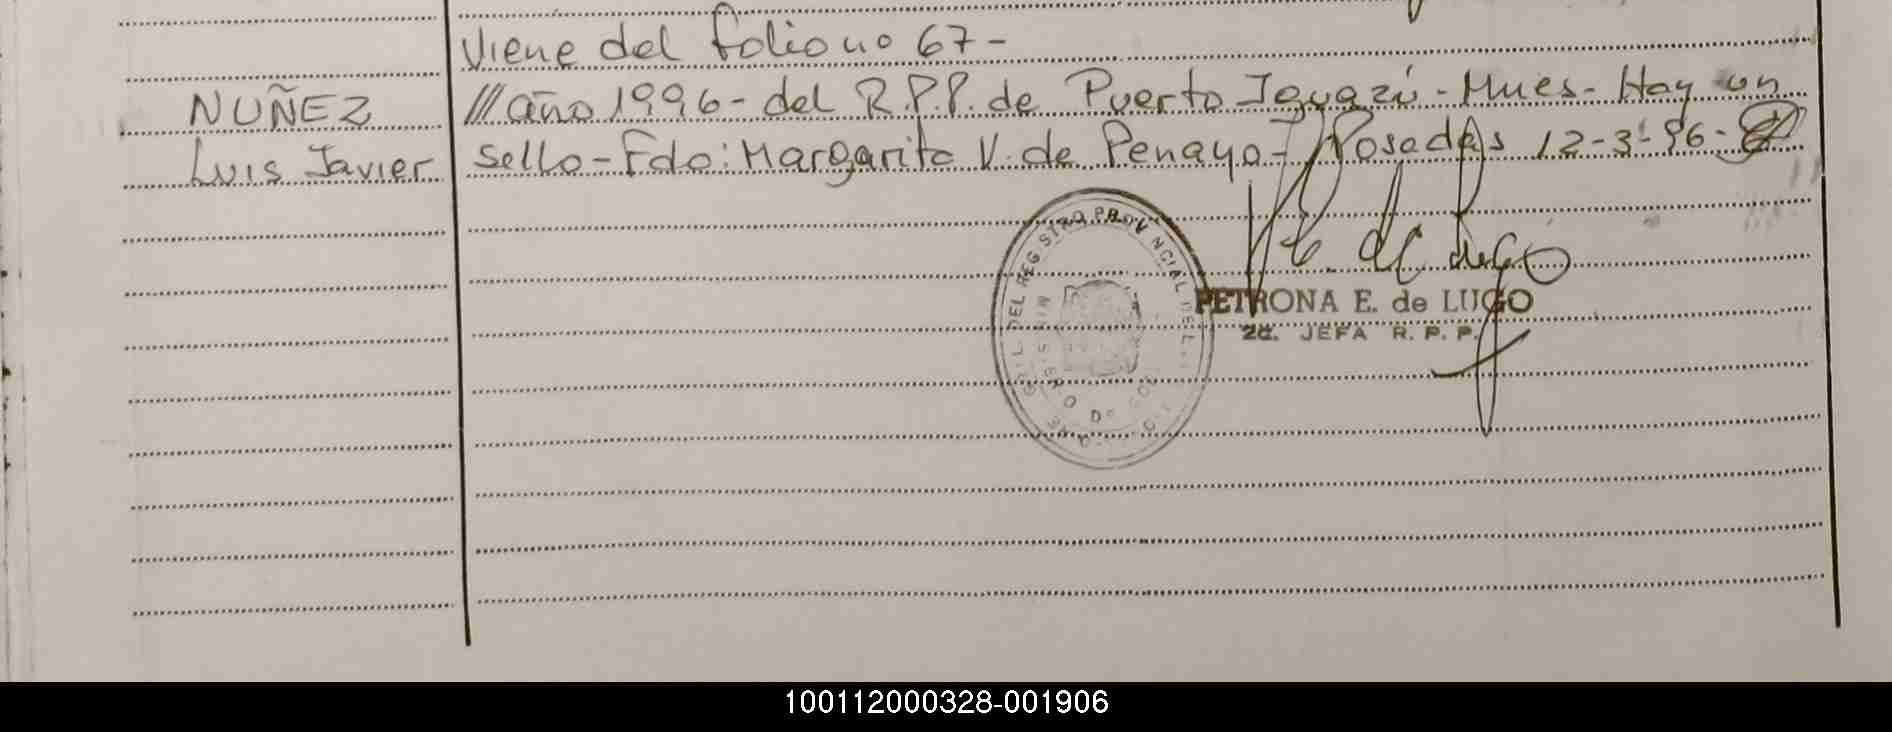 Viene del folio no 67-
NUÑEZ
Luis Javier
/// año 1996- del R.P.P. de Puerto Iguazú - Mnes- Hay un
sello-Fdo: Margarita V. de Penayo- Posadas 12-3-96-
REGISTRO PROVINCIAL DE L
PETRONA E. de LUGO
2a. JEFA R. P. P.
100112000328-001906